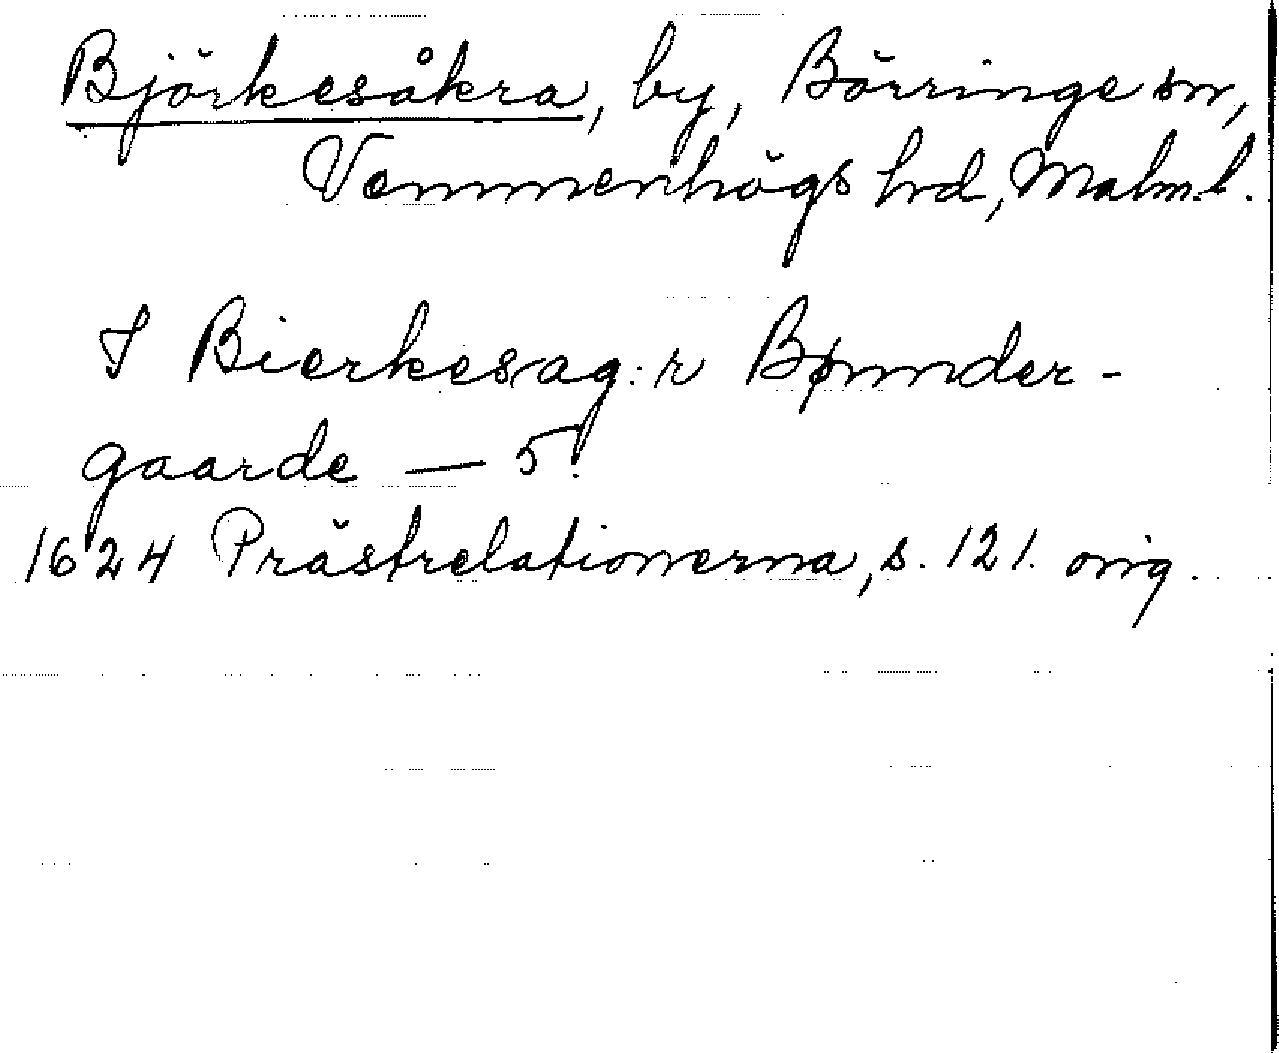 Björkesåkra, by, Börringe sn,
Vemmenhögs hrd, Malm.l.
I Bierkesag:r Bønnder-
gaarde — 5.
1624 Prästrelationerna, s. 121. orig.